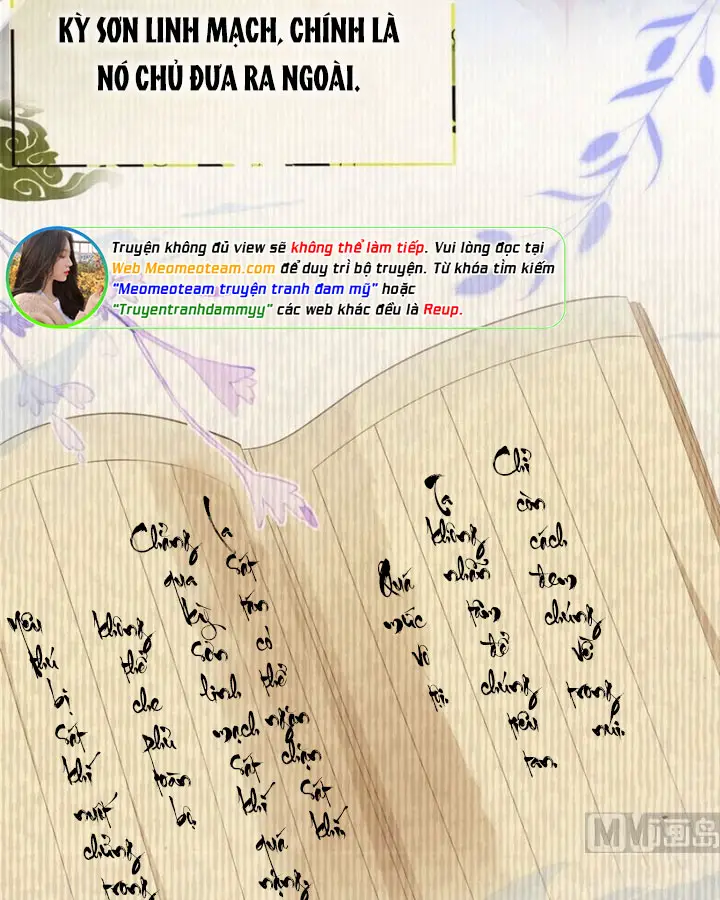 KỲ SƠN LINH MẠCH, CHÍNH LÀ
NÓ CHỦ ĐƯA RA NGOÀI.
Truyện không đủ view sẽ không thể làm tiếp. Vui lòng đọc tại
Web Meomeoteam.com để duy trì bộ truyện. Từ khóa tìm kiếm
“Meomeoteam truyện tranh đam mỹ” hoặc
“Truyentranhdammyy” các web khác đều là Reup.
Chỉ còn cách đem chúng về trong núi.
Ta không nhẫn tâm để chúng tiêu tan.
Quá mức vô tội.
La sát tán có thể ngăn chặn sát khí,
Chẳng qua kỳ sơn linh mạch sát khí quá nặng,
không thể che phủ toàn bộ
yêu thú bị sát khí nuốt chửng trong
MM画岛